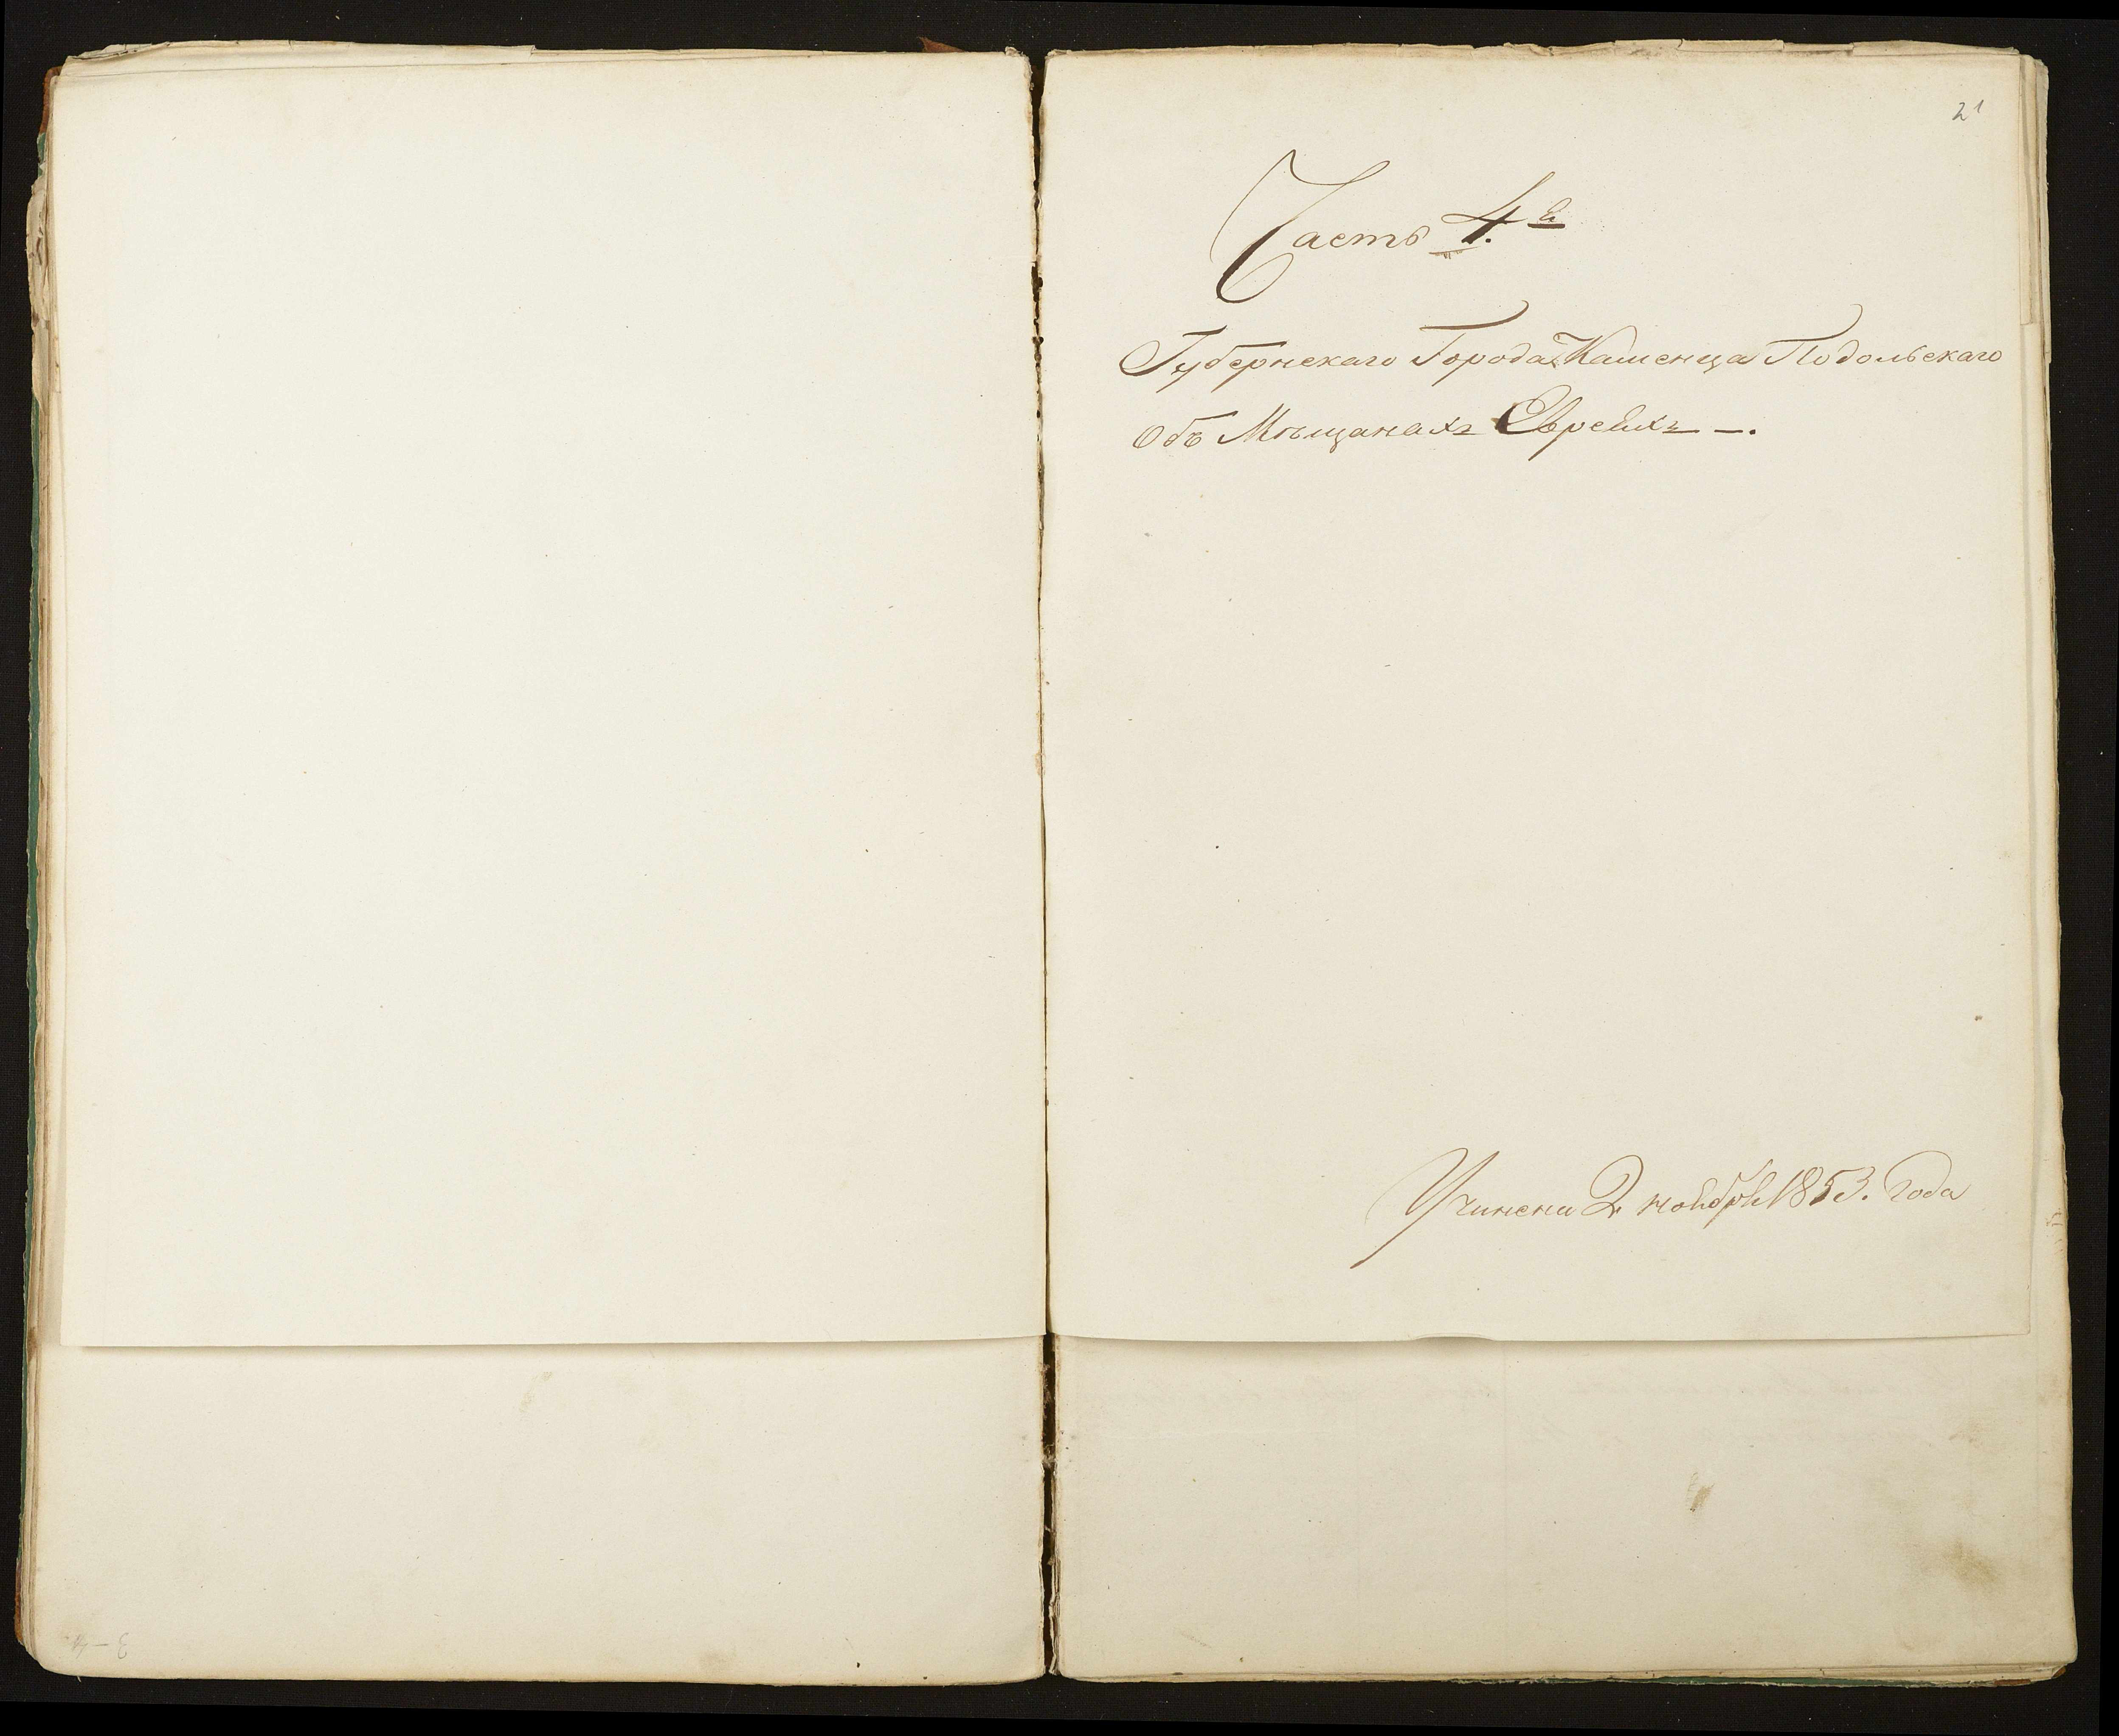 21
Часть 4.я
Губернскаго Города Каменца Подольскаго
Объ Мѣщанахъ Евреяхъ —.
Учинена 2 ноября 1853. Года